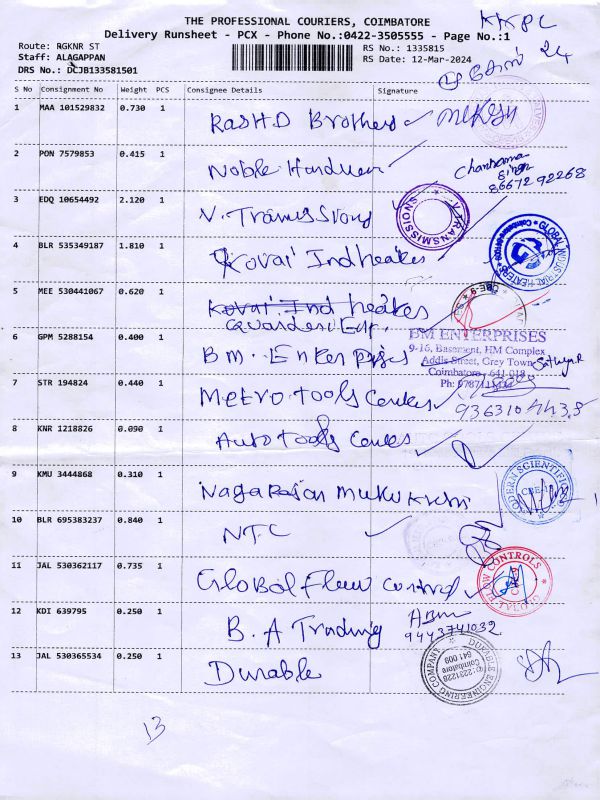 THE PROFESSIONAL COURIERS, COIMBATORE
KKPC
Delivery Runsheet - PCX - Phone No.:0422-3505555 - Page No.:1
Route: RGKNR ST
RS No.: 1335815
24
Staff: ALAGAPPAN
RS Date: 12-Mar-2024
DRS No.: DCJB133581501
S No Consignment No Weight PCS Consignee Details Signature
1 MAA 101529832 0.730 1 Rashd Brothers
2 PON 7579853 0.415 1 Noble Hardwear
Chandrama
Singh
86672 92268
3 EDQ 10654492 2.120 1 V. Transmissions
V.TRANSMISSIONS
4 BLR 535349187 1.810 1 Kovai Indheates
GLOBAL INDUSTRIAL HEATERS
5 MEE 530441067 0.620 1 Kovai Ind heates
CBE-9
6 GPM 5288154 0.400 1 B.M. Enterprises
BM ENTERPRISES
9-16, Basement, HM Complex
Addis Street, Grey Town
Coimbatore - 641 018
7 STR 194824 0.440 1 Metro Tools Centes
8 KNR 1218826 0.090 1 Auto tools Centes
9 KMU 3444868 0.310 1 Nagarajan mukukrishi
MODERN SCIENTIFIC
10 BLR 695383237 0.840 1 NTC
11 JAL 530362117 0.735 1 Global Flow control
GLOBAL FLOW CONTROLS
12 KDI 639795 0.250 1 B. A Trading
9443741032
13 JAL 530365534 0.250 1 Durable
DURABLE ENGINEERING COMPANY
Coimbatore
641 009
13